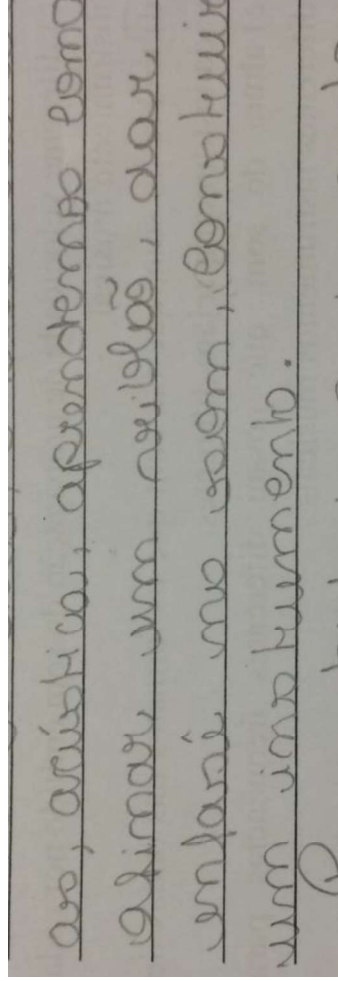 as, acústica, aprendemos como
afinar um violão, dar
enfase no som, construir
num instrumento.